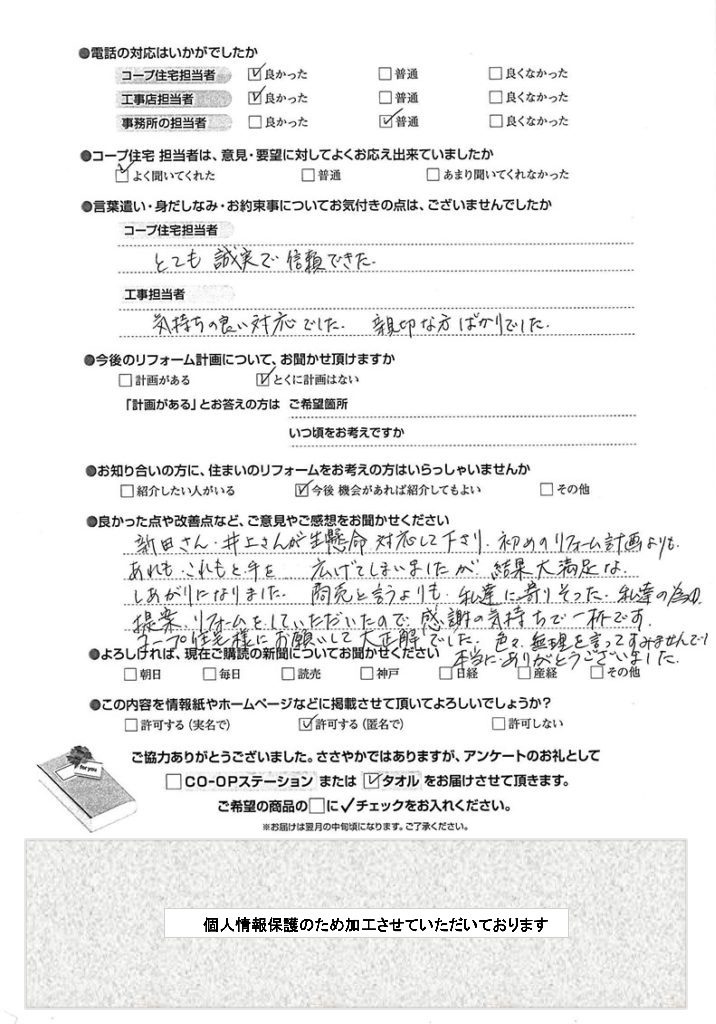 ●電話の対応はいかがでしたか
コープ住宅担当者 ☑良かった □普通 □良くなかった
工事店担当者 ☑良かった □普通 □良くなかった
事務所の担当者 □良かった ☑普通 □良くなかった
●コープ住宅 担当者は、意見・要望に対してよくお応え出来ていましたか
☑よく聞いてくれた □普通 □あまり聞いてくれなかった
●言葉遣い・身だしなみ・お約束事についてお気付きの点は、ございませんでしたか
コープ住宅担当者
とても 誠実で 信頼できた.
工事担当者
気持ちの良い対応でした. 親切な方ばかりでした.
●今後のリフォーム計画について、お聞かせ頂けますか
□計画がある ☑とくに計画はない
「計画がある」とお答えの方は ご希望箇所
いつ頃をお考えですか
●お知り合いの方に、住まいのリフォームをお考えの方はいらっしゃいませんか
□紹介したい人がいる ☑今後 機会があれば紹介してもよい □その他
●良かった点や改善点など、ご意見やご感想をお聞かせください
新田さん・井上さんが 懸命 対応して下さり. 初めのリフォーム計画よりも.
あれも これもと手を 広げてしまいましたが 結果 大満足な.
しあがりになりました. 商売と言うよりも. 私達に寄りそった. 私達の為の
提案. リフォームをしていただいたので. 感謝の気持ちで一杯です.
コープ住宅様にお願いして 大正解でした. 色々 無理を言ってすみませんでし
本当に ありがとうございました.
●よろしければ、現在ご購読の新聞についてお聞かせください
□朝日 □毎日 □読売 □神戸 □日経 □産経 □その他
●この内容を情報紙やホームページなどに掲載させて頂いてよろしいでしょうか?
□許可する(実名で) ☑許可する(匿名で) □許可しない
for you
ご協力ありがとうございました。ささやかではありますが、アンケートのお礼として
□CO-OPステーション または ☑タオル をお届けさせて頂きます。
ご希望の商品の□に✓チェックをお入れください。
※お届けは翌月の中旬頃になります。ご了承ください。
個人情報保護のため加工させていただいております